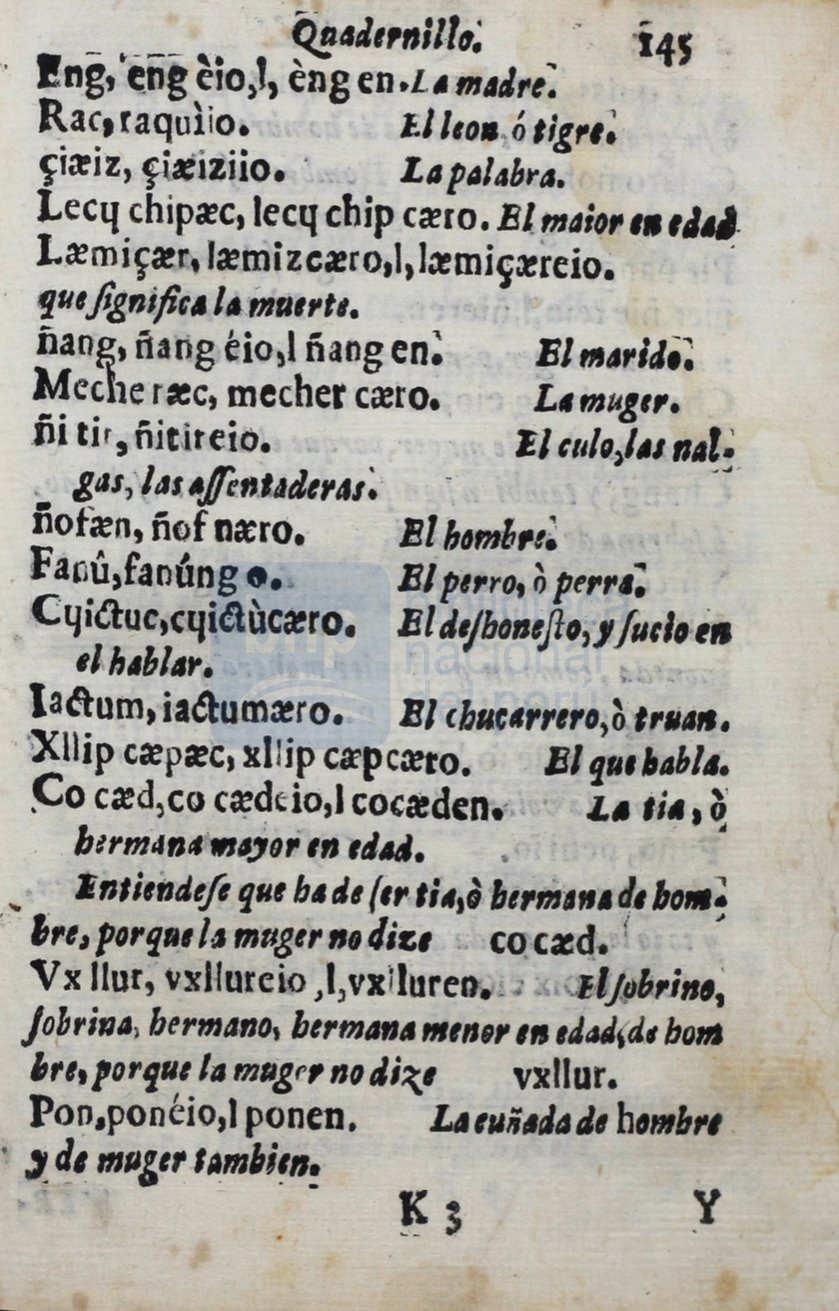 Quadernillo. 145
Eng̃, eng̃ èio,l, èng en. La madre.
Rac, raquìio. El leon ó tigre.
çiæiz, çiæiziio. La palabra.
Lecɥ chipæc, lecɥ chip cæro. El maior en edad
Læmiçær, læmizcæro,l,læmiçæreio.
que ſignifica la muerte.
ñang, ñang éio,l ñang en. El marido.
Meche ræc, mecher cæro. La muger.
ñi tir, ñitireio. El culo,las nal-
gas, las aſſentaderas.
ñofæn, ñof næro. El hombre.
Fanû,fanúng o. El perro, ò perra.
Cɥictuc,cɥictùcæro. El deſhoneſto, y ſucio en
el hablar.
Iactum, iactumæro. El chucarrero,ò truan.
Xllip cæpæc, xllip cæpcæro. El que habla.
Co cæd,co cædeio,l cocæden. La tia, ò
hermana mayor en edad.
Entiendeſe que ha de ſer tia,ò hermana de hom-
bre, porque la muger no dize co cæd.
Vx llur, vxllureio ,l,vxlluren. El ſobrino,
ſobrina, hermano, hermana menor en edad,de hom
bre, porque la muger no dize vxllur.
Pon,ponéio,l ponen. La cuñada de hombre
y de muger tambien.
K 3 Y
bnp biblioteca
nacional
del perú